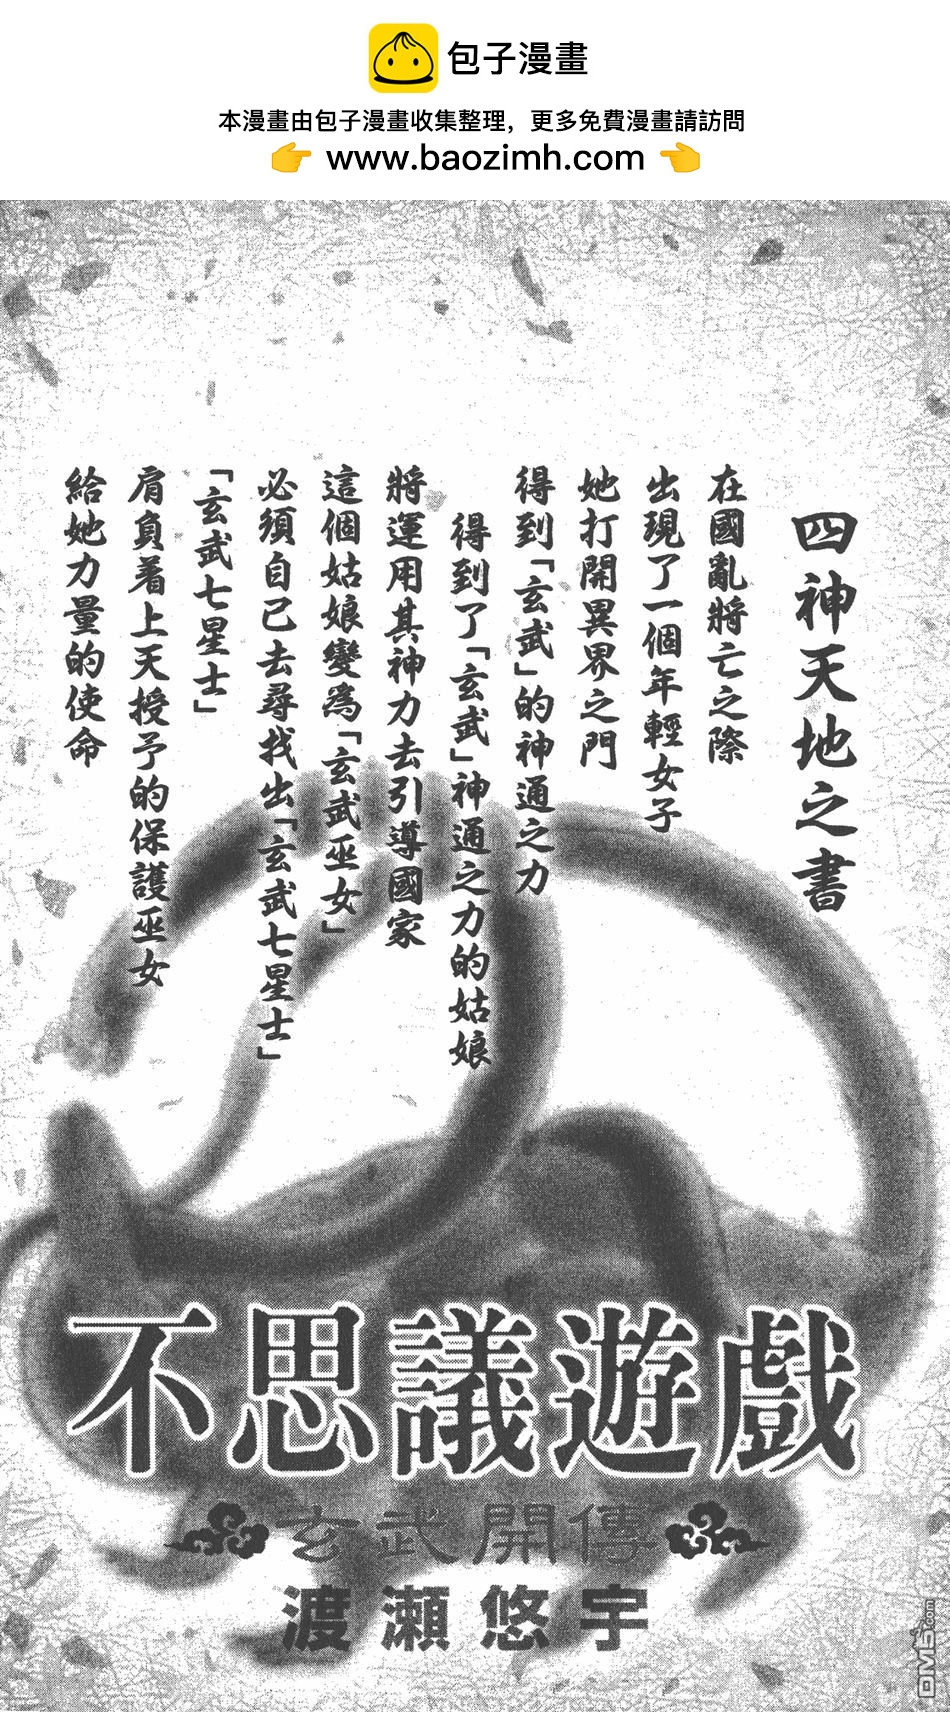 包子漫畫
本漫畫由包子漫畫收集整理，更多免費漫畫請訪問
👉 www.baozimh.com 👈
四神天地之書
在國亂將亡之際
出現了一個年輕女子
她打開異界之門
得到「玄武」的神通之力
得到了「玄武」神通之力的姑娘
將運用其神力去引導國家
這個姑娘變為「玄武巫女」
必須自己去尋找出「玄武七星士」
「玄武七星士」
肩負着上天授予的保護巫女
給她力量的使命
不思議遊戲
玄武開傳
渡瀨悠宇
DM5.com